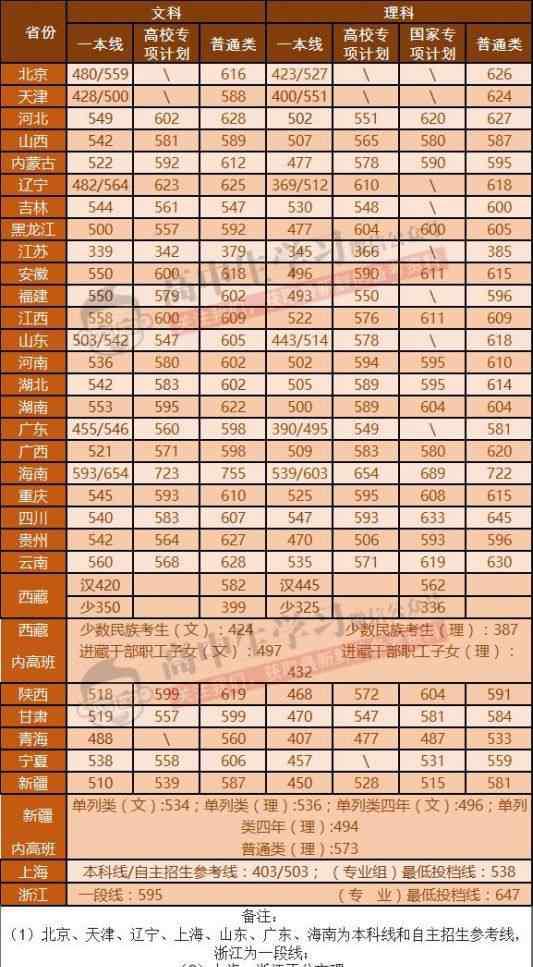 省份 文科 理科
一本线 高校专项计划 普通类 一本线 高校专项计划 国家专项计划 普通类
北京 480/559 \ 616 423/527 \ \ 626
天津 428/500 \ 588 400/551 \ \ 624
河北 549 602 628 502 551 620 627
山西 542 581 589 507 565 580 587
内蒙古 522 592 612 477 578 590 595
辽宁 482/564 623 625 369/512 610 \ 618
吉林 544 561 547 530 548 \ 600
黑龙江 500 557 592 477 604 600 605
江苏 339 342 379 345 366 \ 385
安徽 550 600 618 496 590 611 615
福建 550 579 602 493 550 \ 596
江西 558 600 609 522 576 611 609
山东 503/542 547 605 443/514 578 \ 618
河南 536 580 602 502 594 595 610
湖北 542 583 602 505 589 595 614
湖南 553 595 622 500 589 604 604
广东 455/546 560 598 390/495 549 \ 581
广西 521 571 598 509 583 580 620
海南 593/654 723 755 539/603 654 689 722
重庆 545 593 610 525 595 608 615
四川 540 583 607 547 593 633 645
贵州 542 564 627 470 506 593 596
云南 560 568 628 535 571 619 630
西藏 汉420 582 汉445 562
少350 399 少325 336
西藏 少数民族考生（文）:424 少数民族考生（理）:387
内高班 进藏干部职工子女（文）:497 进藏干部职工子女（理）:
432
陕西 518 599 619 468 572 604 591
甘肃 519 557 599 470 547 581 584
青海 488 \ 560 407 477 487 533
宁夏 538 558 606 457 \ 531 559
新疆 510 539 587 450 528 515 581
新疆 单列类（文）:534；单列类（理）:536；单列类四年（文）:496；单列
类四年（理）:494
内高班 普通类（理）:573
上海 本科线/自主招生参考线：403/503；（专业组）最低投档线：538
浙江 一段线：595 （专 业）最低投档线：647
备注：
（1）北京、天津、辽宁、上海、山东、广东、海南为本科线和自主招生参考线，
浙江为一段线；
高中生学习
高中生学习